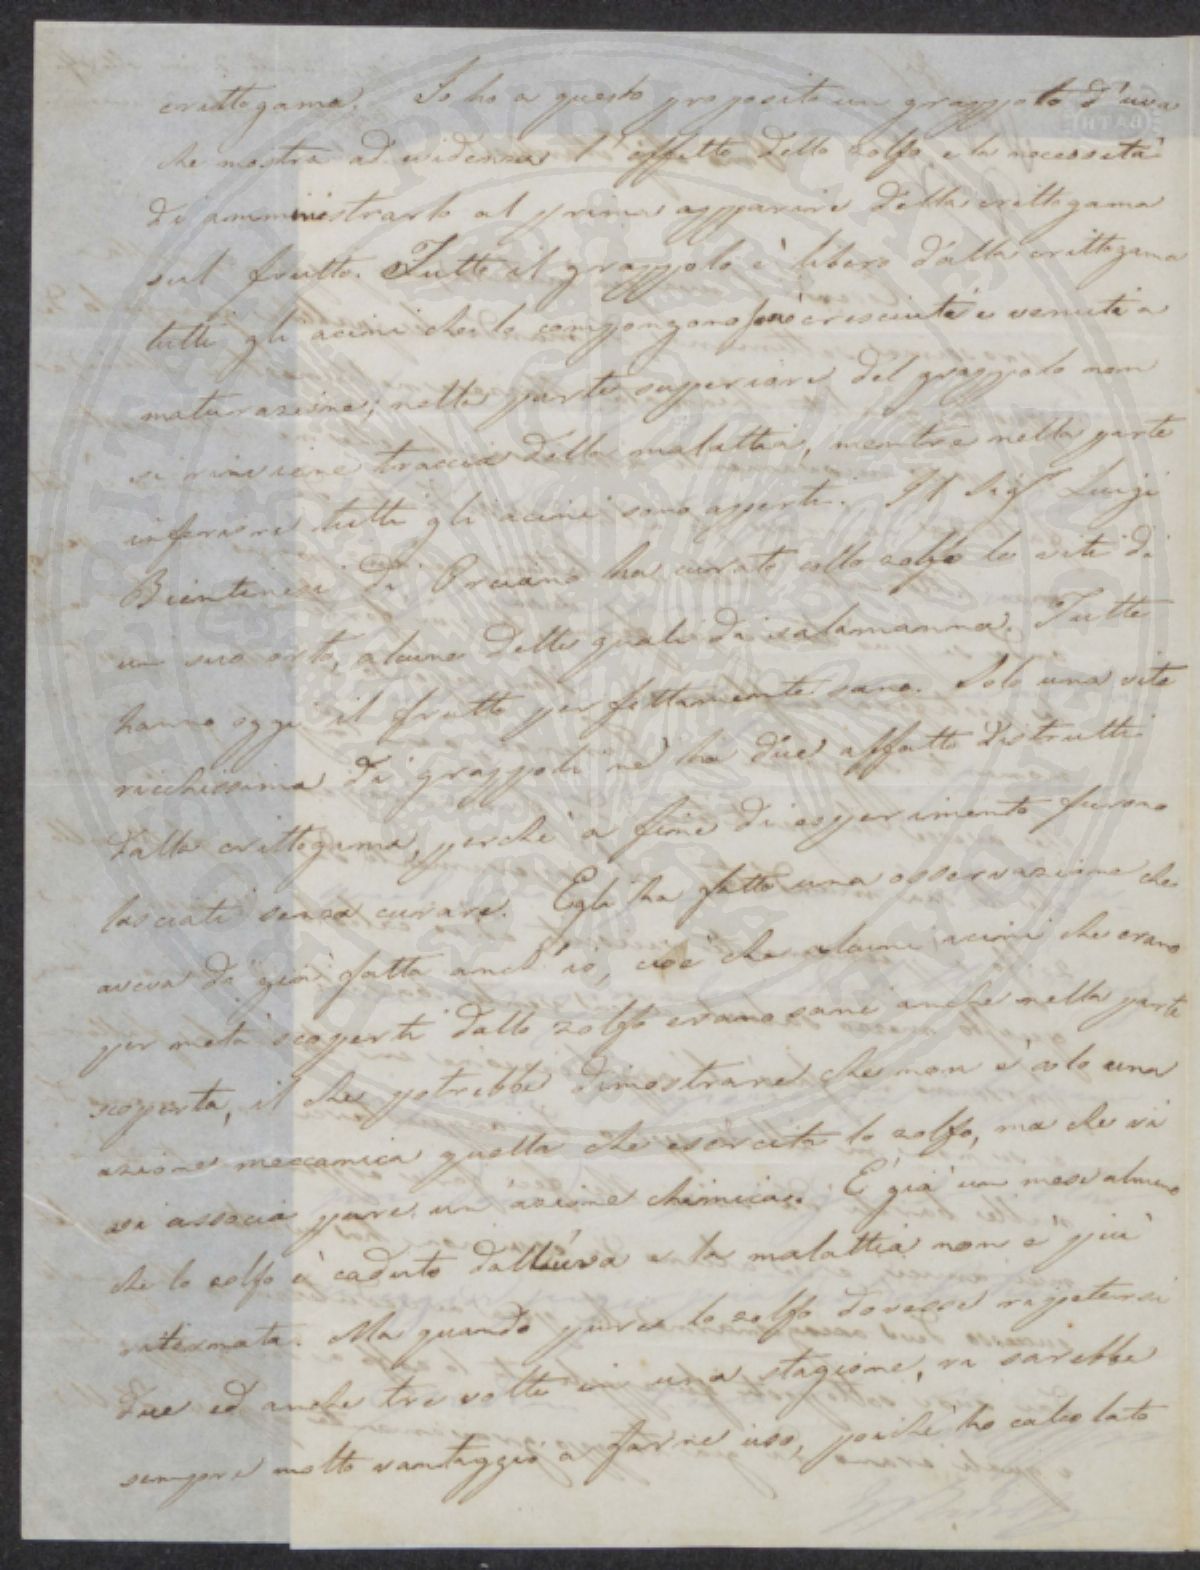 crittogama. Io ho a questo proposito un grappolo d'uva
che mostra ad evidenza l'effetto dello zolfo e la necessità
di amministrarlo al primo apparire della crittogama
sul frutto. Tutto il grappolo è libero dalla crittogama
tutti gli acini che lo compongono cresciuti e venuti a
maturazione; nella parte superiore del grappolo non
si rinviene traccia della malattia, mentre nella parte
inferiore tutti gli acini sono aperti. Il Sigr Luigi
Bientinesi di Orciano ha curato collo zolfo le viti di
un suo orto, alcune delle quali di salamanna. Tutte
hanno oggi il frutto perfettamente sano. Solo una vite
ricchissima di grappoli ne ha due affatto distrutti
dalla crittogama, perché a fine di esperimento furono
lasciati senza curare. Egli ha fatto una osservazione che
aveva di già fatta anch'io, cioè che alcuni acini che erano
per metà scoperti dallo zolfo erano sani anche nella parte
scoperta, il che potrebbe dimostrare che non è solo una
azione meccanica quella che esercita lo zolfo, ma che vi
si associa pure un azione chimica. È già un mese almeno
che lo zolfo è caduto dall'uva e la malattia non è più
ritornata. Ma quando pure lo zolfo dovesse ripetersi
due ed anche tre volte in una stagione, vi sarebbe
sempre molto vantaggio a farne uso, poiché ho calcolato